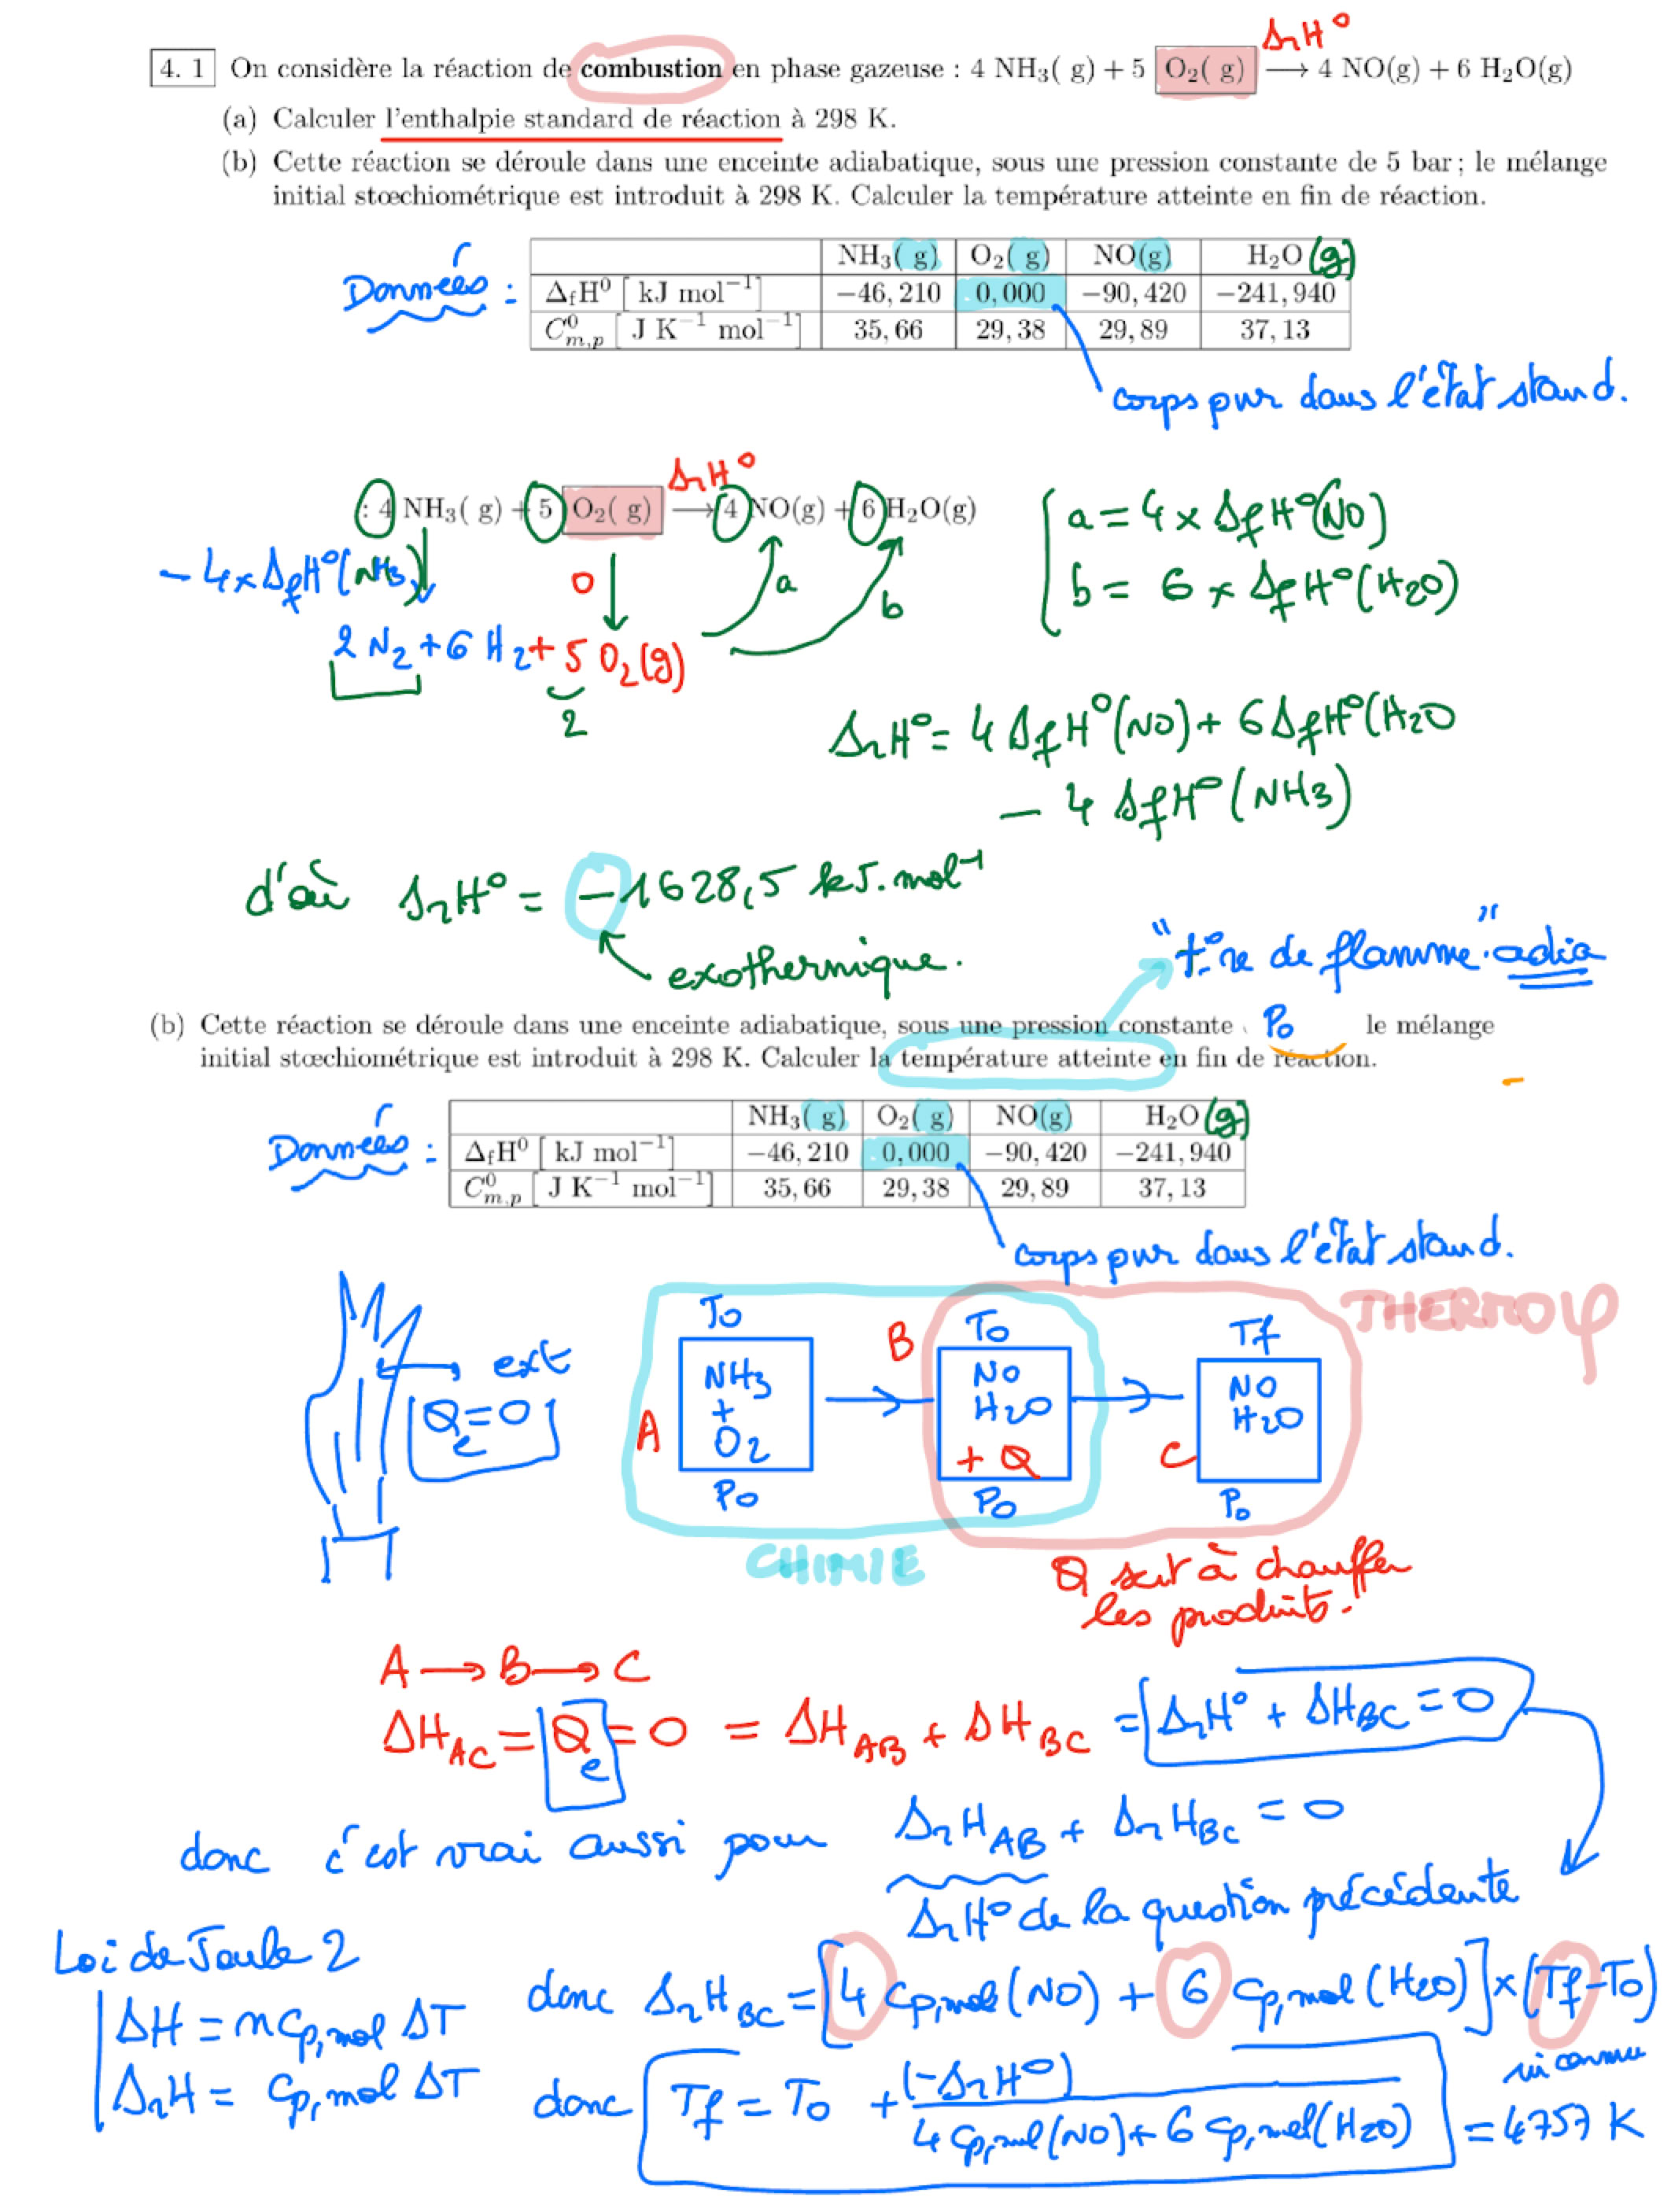 ΔrH°
4. 1 On considère la réaction de combustion en phase gazeuse : 4 NH₃( g) + 5 O₂( g) ⟶ 4 NO(g) + 6 H₂O(g)
(a) Calculer l'enthalpie standard de réaction à 298 K.
(b) Cette réaction se déroule dans une enceinte adiabatique, sous une pression constante de 5 bar ; le mélange
initial stœchiométrique est introduit à 298 K. Calculer la température atteinte en fin de réaction.
Données :
NH₃( g) O₂( g) NO(g) H₂O (g)
ΔfH⁰ [ kJ mol⁻¹] −46, 210 0, 000 −90, 420 −241, 940
C⁰m,p [ J K⁻¹ mol⁻¹] 35, 66 29, 38 29, 89 37, 13
corps pur dans l'état stand.
ΔrH°
: 4 NH₃( g) + 5 O₂( g) ⟶ 4 NO(g) + 6 H₂O(g)
a = 4 x ΔfH°(NO)
− 4x ΔfH°(NH3)
0
a
b
b = 6 x ΔfH°(H2O)
2 N₂ + 6 H₂ + 5 O₂(g)
2
ΔrH° = 4 ΔfH°(NO) + 6 ΔfH°(H2O
− 4 ΔfH°(NH3)
d'où ΔrH° = −1628,5 kJ.mol⁻¹
exothermique.
"t.re de flamme" adia
(b) Cette réaction se déroule dans une enceinte adiabatique, sous une pression constante P₀ le mélange
initial stœchiométrique est introduit à 298 K. Calculer la température atteinte en fin de réaction.
Données :
NH₃( g) O₂( g) NO(g) H₂O (g)
ΔfH⁰ [ kJ mol⁻¹] −46, 210 0, 000 −90, 420 −241, 940
C⁰m,p [ J K⁻¹ mol⁻¹] 35, 66 29, 38 29, 89 37, 13
corps pur dans l'état stand.
THERMO φ
ext
Qe = 0
A
To
NH3
+
O2
Po
B
To
NO
H2O
+ Q
Po
C
Tf
NO
H2O
Po
CHIMIE
Q sert à chauffer
les produits.
A → B → C
ΔH AC = Qe = 0 = ΔH AB + ΔH BC = ΔrH° + ΔH BC = 0
donc c'est vrai aussi pour ΔrH AB + ΔrH BC = 0
ΔrH° de la question précédente
Loi de Joule 2
ΔH = n Cp,mol ΔT
ΔrH = Cp,mol ΔT
donc ΔrH BC = [4 Cp,mol (NO) + 6 Cp,mol (H2O)] x (Tf − To)
inconnu
donc Tf = To + (−ΔrH°) / 4 Cp,mol (NO) + 6 Cp,mol (H2O) = 4757 K